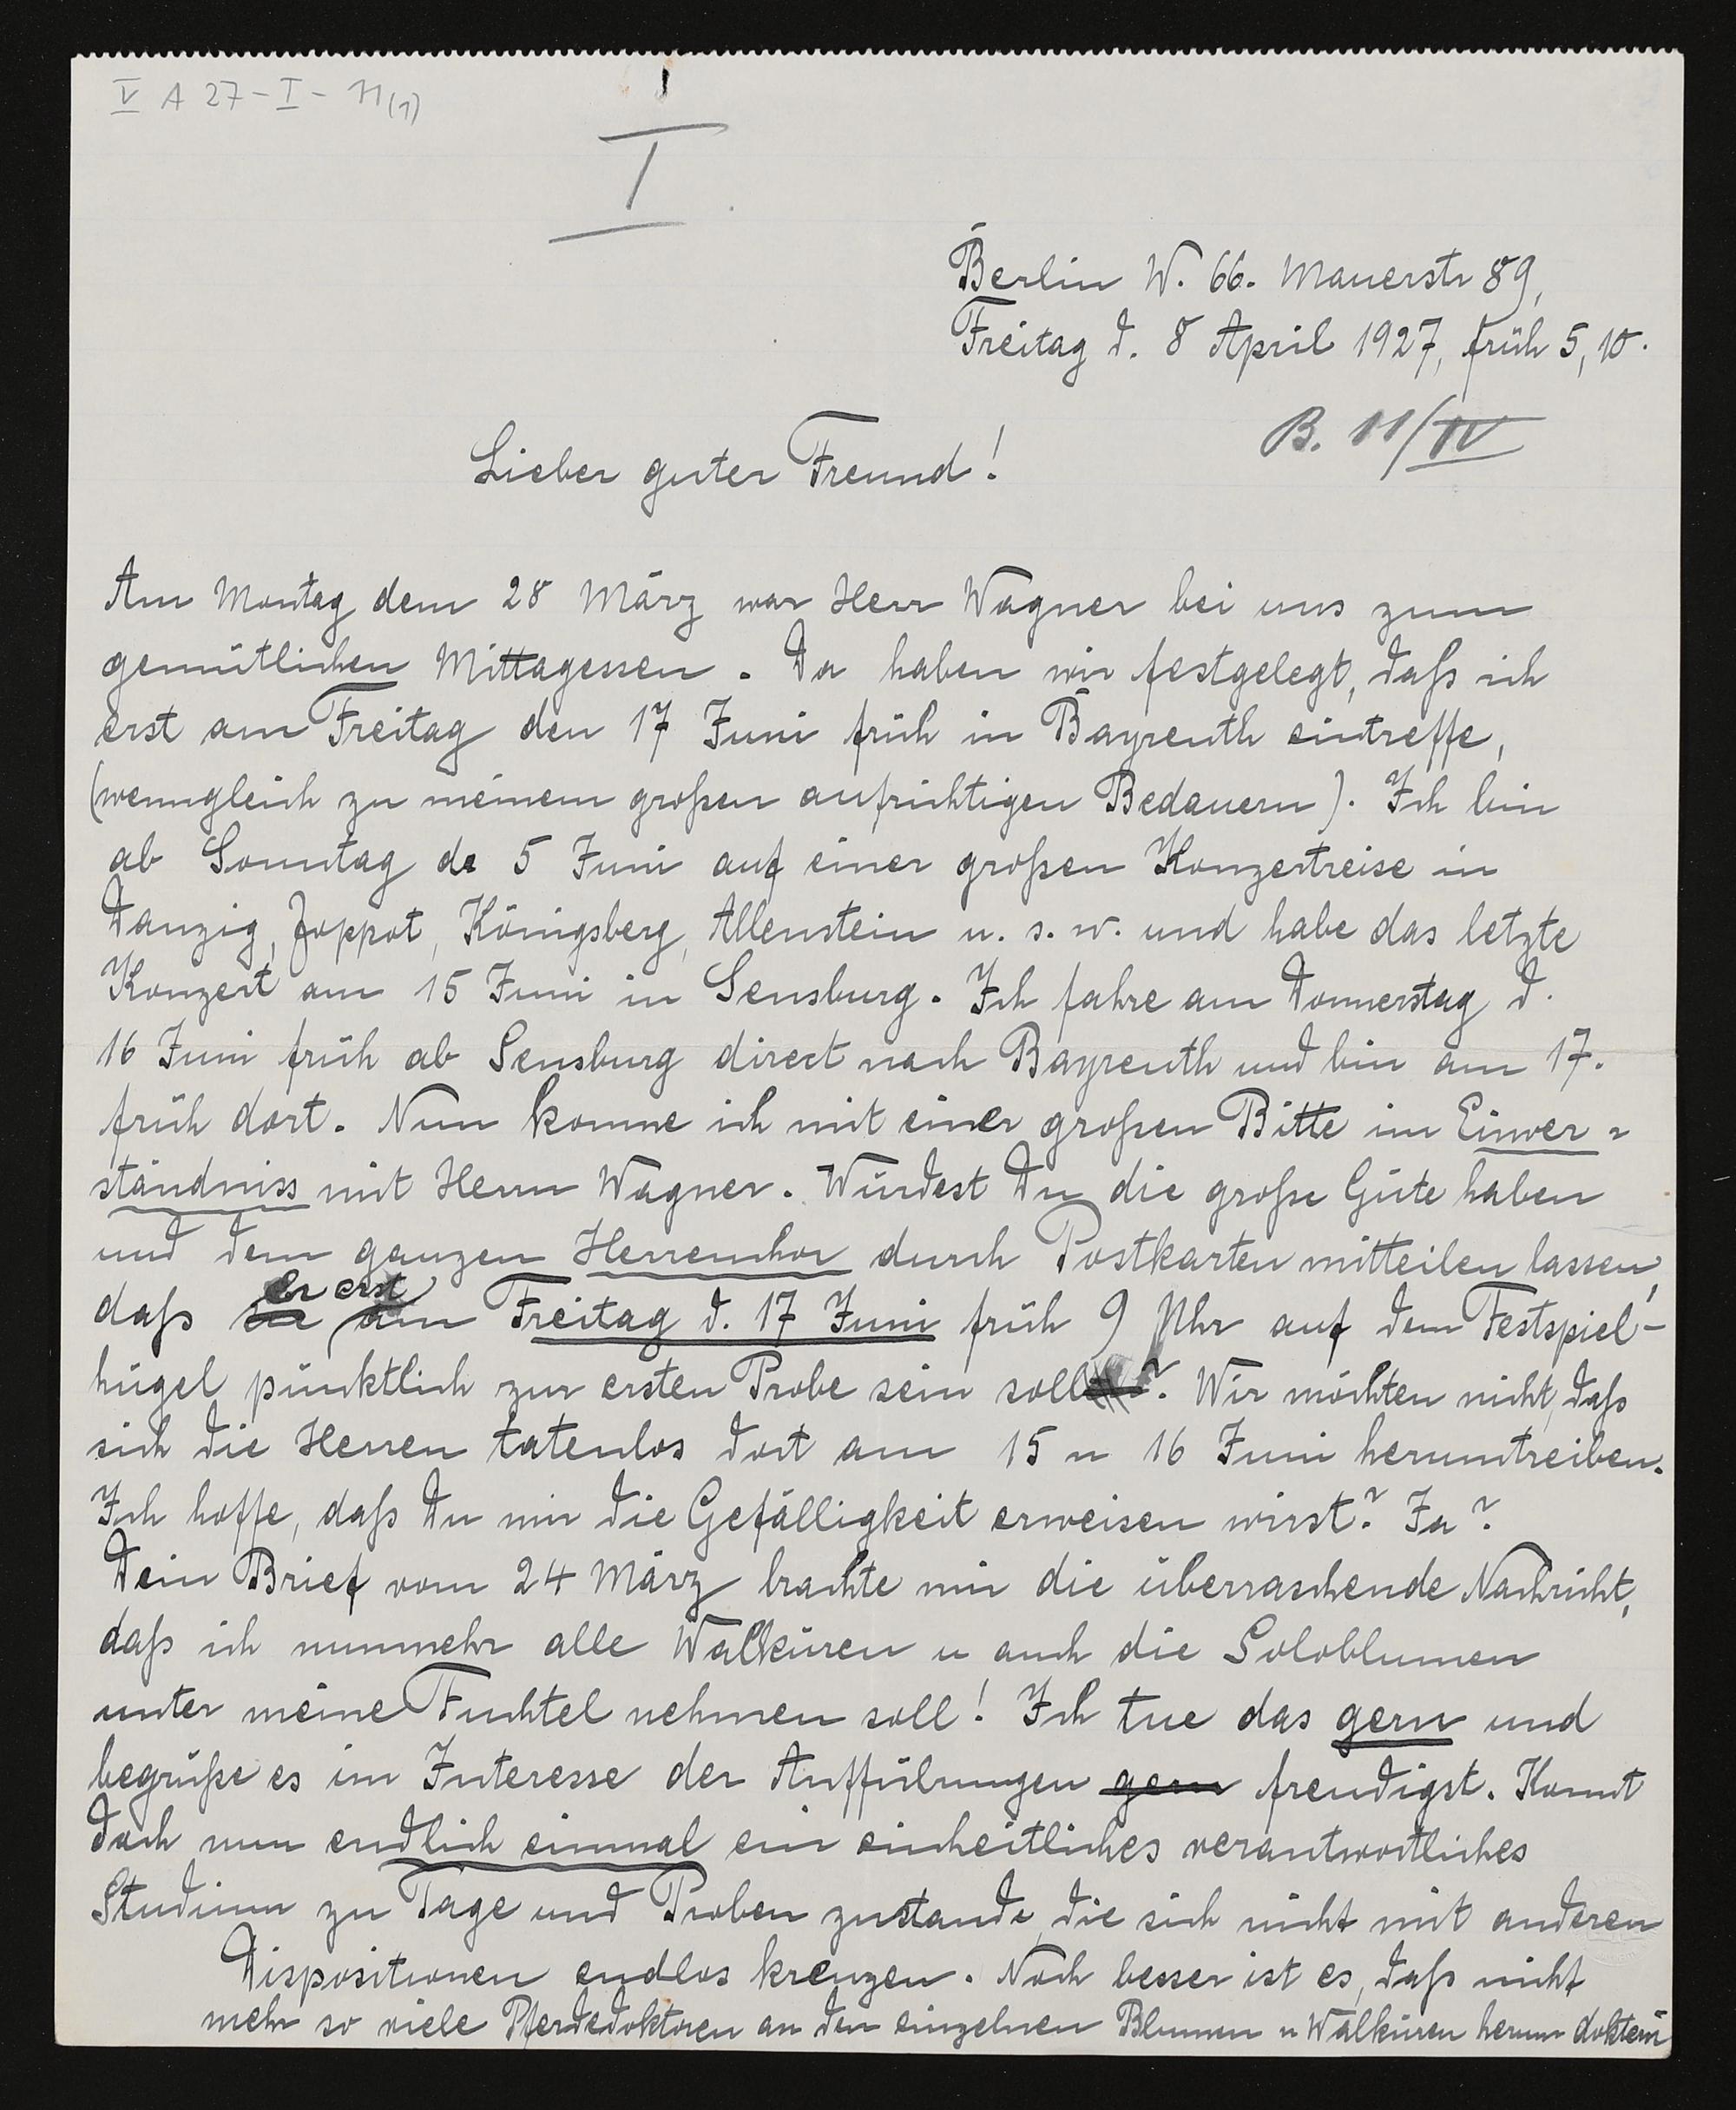 V A 27 - I - 11 (1)
I
Berlin W. 66. Mauerstr 89,
Freitag d. 8 April 1927, früh 5,10.
B. 11/IV
Lieber guter Freund!
Am Montag dem 28 März war Herr Wagner bei uns zum
gemütlichen Mittagessen. Da haben wir festgelegt, daß ich
erst am Freitag den 17 Juni früh in Bayreuth eintreffe,
(wenngleich zu meinem großen aufrichtigen Bedauern). Ich bin
ab Sonntag de 5 Juni auf einer großen Konzertreise in
Danzig, Zoppot, Königsberg, Allenstein u. s. w. und habe das letzte
Konzert am 15 Juni in Sensburg. Ich fahre am Donnerstag d.
16 Juni früh ab Sensburg direct nach Bayreuth und bin am 17.
früh dort. Nun komme ich mit einer großen Bitte im Einver-
ständniss mit Herrn Wagner. Würdest Du die große Güte haben
und dem ganzen Herrenchor durch Postkarten mitteilen lassen,
er erst
daß sie am Freitag d. 17 Juni früh 9 Uhr auf dem Festspiel-
hügel pünktlich zur ersten Probe sein soll?. Wir möchten nicht, daß
sich die Herren tatenlos dort am 15 u 16 Juni herumtreiben.
Ich hoffe, daß Du mir die Gefälligkeit erweisen wirst? Ja?
Dein Brief vom 24 März brachte mir die überraschende Nachricht,
daß ich nunmehr alle Walküren u auch die Soloblumen
unter meine Fuchtel nehmen soll! Ich tue das gern und
begrüße es im Interesse der Aufführungen gern freudigst. Komt
doch nun endlich einmal ein einheitliches verantwortliches
Studium zu Tage und Proben zustande, die sich nicht mit anderen
Dispositionen endlos kreuzen. Noch besser ist es, daß nicht
mehr so viele Pferdedoktoren an den einzelnen Blumen u Walküren herum doktern